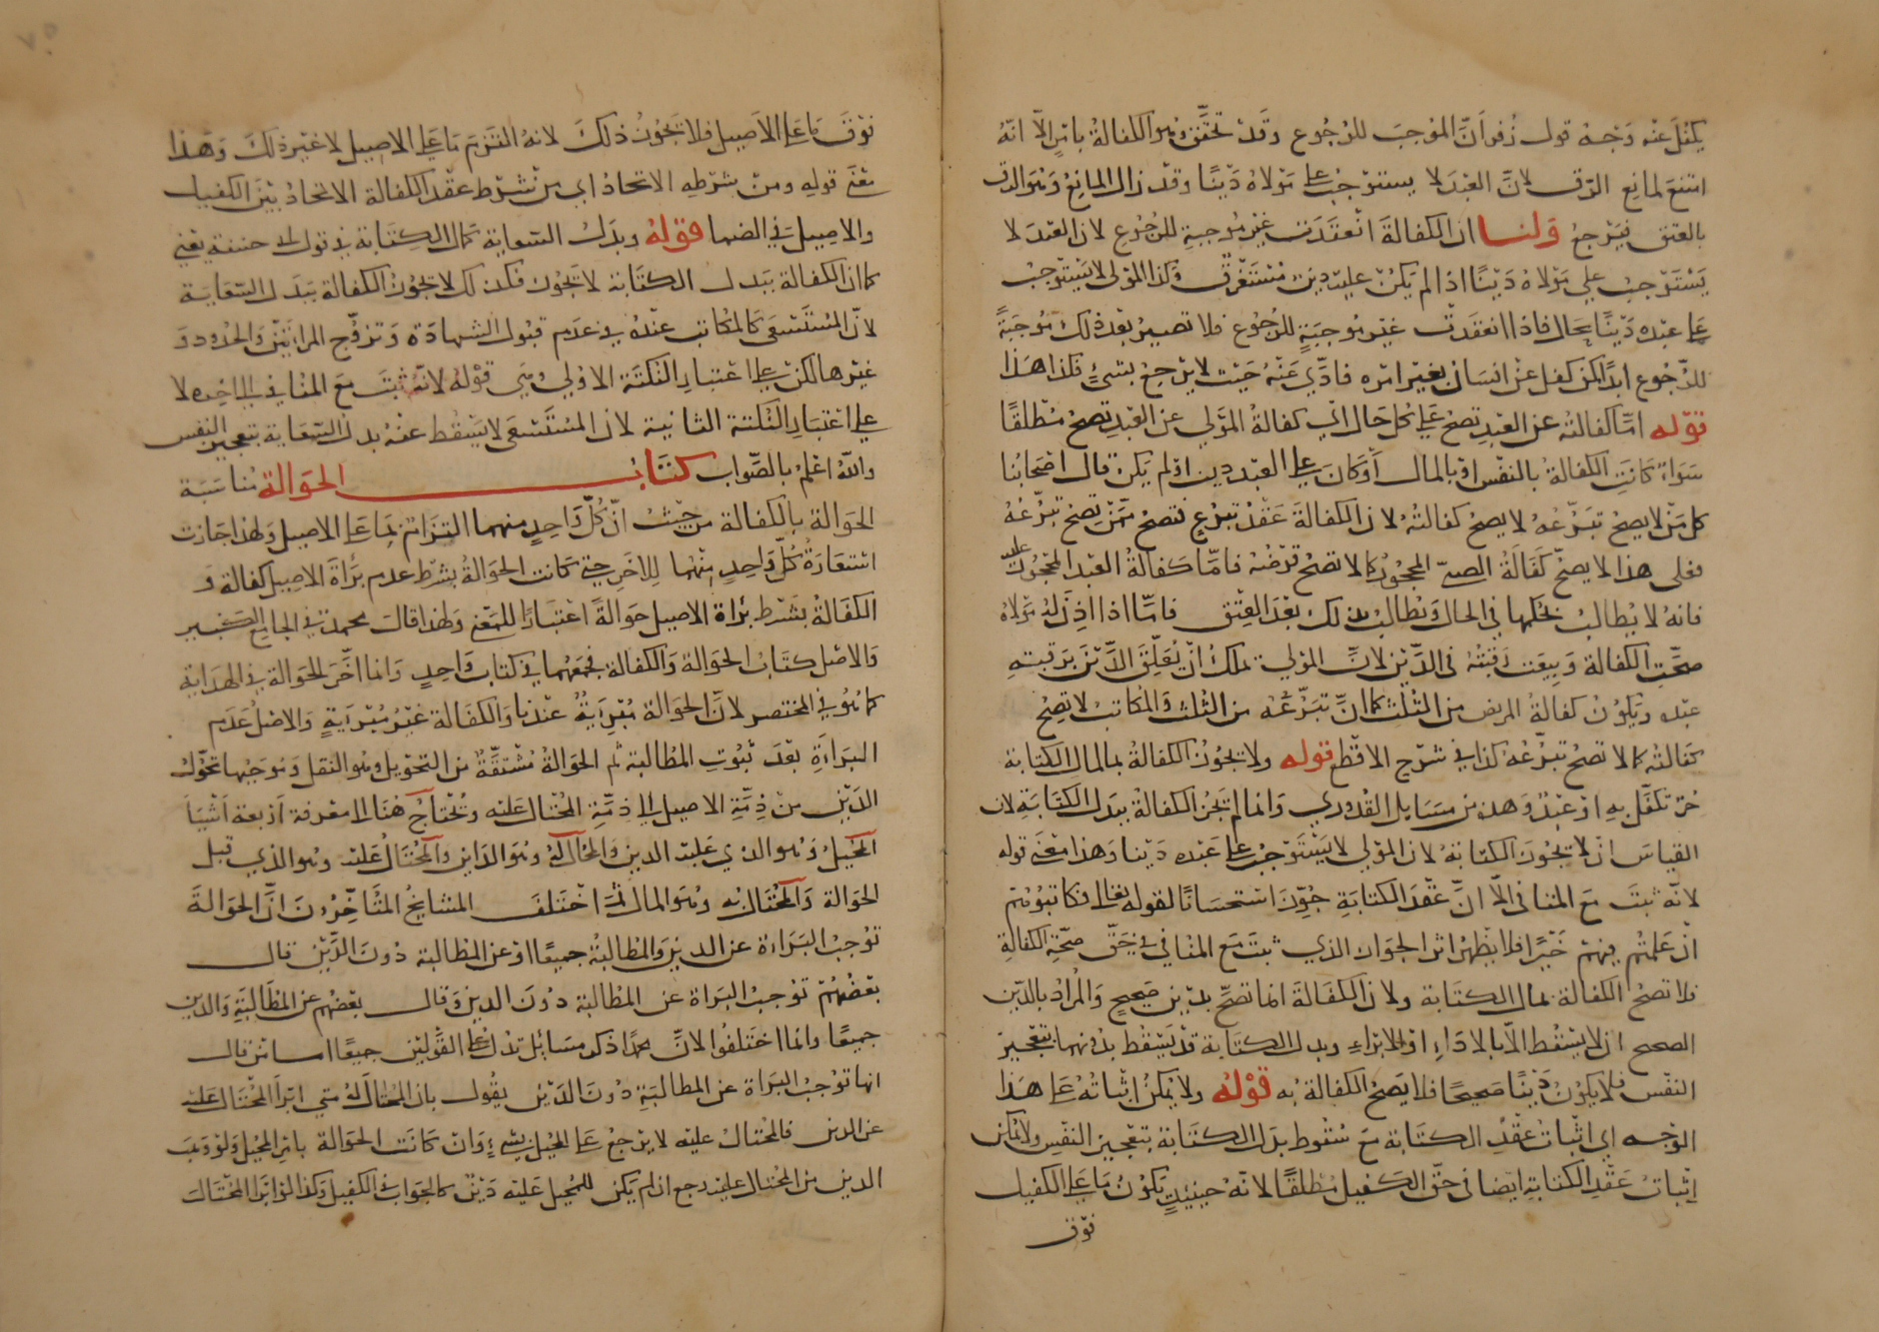 يكفل عنه وجه قول زفر ان الموجب للرجوع وقد تحقق وهو الكفالة بامره الا انه
امتنع لمانع الرق لان العبد لا يستوجب على مولاه دينا وقد زال المانع وهو الرق
بالعتق فيرجع ولنا ان الكفالة انعقدت غير موجبة للرجوع لان العبد لا
يستوجب على مولاه دينا اذا لم يكن عليه دين مستغرق وكذا المولى لا يستوجب
على عبده دينا بحال فاذا انعقدت غير موجبة للرجوع فلا تصير بعد ذلك موجبة
للرجوع ابدا كمن كفل عن انسان بغير امره فادى عنه حيث لا يرجع بشيء فكذا هذا
قوله اما كفالته عن العبد تصح على كل حال اي كفالة المولى عن العبد تصح مطلقا
سواء كانت الكفالة بالنفس او بالمال أو كان على العبد دين او لم يكن قال اصحابنا
كل من لا يصح تبرعه لا يصح كفالته لان الكفالة عقد تبرع فتصح ممن يصح تبرعه
فعلى هذا لا يصح كفالة الصبي المحجور كما لا تصح قرضه فاما كفالة العبد المحجور عليه
فانه لا يطالب بحكمها في الحال ويطالب بذلك بعد العتق فاما اذا اذن له مولاه
صحت الكفالة وبيعت رقبته في الدين لان المولى تملك ان يعلق الدين برقبته
عبده ويكون كفالة المريض من الثلث كما ان تبرعه من الثلث والمكاتب لا تصح
كفالته كما لا تصح تبرعه كذا في شرح الاقطع قوله ولا يجوز الكفالة بمال الكتابة
حر تكفل به او عبد وهذه من مسايل القدوري وانما لم تجز الكفالة ببدل الكتابة لان
القياس ان لا يجوز الكتابة لان المولى لا يستوجب على عبده دينا وهذا معنى قوله
لانه ثبت مع المنافي الا ان عقد الكتابة جوز استحسانا لقوله تعالى فكاتبوهم
ان علمتم فيهم خيرا فلا يظهر اثر الجواز الذي ثبت مع المنافي في حق صحة الكفالة
فلا تصح الكفالة بمال الكتابة ولان الكفالة انما تصح بدين صحيح والمراد بالدين
الصحيح ان لا يسقط الا بالاداء او الابراء وبدل الكتابة قد يسقط بدونهما بتعجيز
النفس فلا يكون دينا صحيحا فلا يصح الكفالة به قوله ولا يمكن اثباته على هذا
الوجه اي اثبات عقد الكتابة مع سقوط بدل الكتابة بتعجيز النفس ولا يمكن
إثبات عقد الكتابة ايضا في حق الكفيل مطلقا لانه حينئذ يكون ما على الكفيل
فوق
فوق ما على الاصيل فلا يجوز ذلك لانه التزم ما على الاصيل لا غير ذلك وهذا
معنى قوله ومن شرطه الاتحاد اي من شرط عقد الكفالة الاتحاد بين الكفيل
والاصيل في الضما قوله وبدل السعاية كمال الكتابة في قول ابي حنيفة يعني
كما ان الكفالة ببدل الكتابة لا تجوز فكذلك لا تجوز الكفالة ببدل السعاية
لان المستسعى كالمكاتب عنده في عدم قبول الشهادة وتزوج المراتين والحدود و
غيرها لكن على اعتبار النكتة الاولى وهي قوله لانه ثبت مع المنافي الى اخره لا
على اعتبار النكتة الثانية لان المستسعى لا يسقط عنه بدل السعاية بتعجيز النفس
والله اعلم بالصواب كتاب الحوالة مناسبة
الحوالة بالكفالة من حيث ان كل واحد منهما التزام بما على الاصيل ولهذا جازت
استعارة كل واحد منهما للاخر حتى كانت الحوالة بشرط عدم براة الاصيل كفالة و
الكفالة بشرط براة الاصيل حوالة اعتبارا للمعنى ولهذا قال محمد في الجامع الكبير
والاصل كتاب الحوالة والكفالة فجمعهما في كتاب واحد وانما اخر الحوالة في الهداية
كما هو في المختصر لان الحوالة مبرئة عندنا والكفالة غير مبرئة والاصل عدم
البراءة بعد ثبوت المطالبة ثم الحوالة مشتقة من التحويل وهو النقل وموجبها تحول
الدين من ذمة الاصيل الى ذمة المحتال عليه وتحتاج هنا الى معرفة اربعة اشياء
المحيل وهو الذي عليه الدين والمحتال له وهو الداين والمحتال عليه وهو الذي قبل
الحوالة والمحتال به وهو المال ثم اختلف المشايخ المتأخرون ان الحوالة
توجب البراءة عن الدين والمطالبة جميعا او عن المطالبة دون الدين قال
بعضهم توجب البراة عن المطالبة دون الدين وقال بعضهم عن المطالبة والدين
جميعا وانما اختلفوا لان محمدا ذكر مسائل تدل على القولين جميعا اما من قال
انها توجب البراة عن المطالبة دون الدين يقول بان المحتال له متى ابرأ المحتال عليه
عن الدين فالمحتال عليه لا يرجع على المحيل بشيء وان كانت الحوالة بامر المحيل ولو وهب
الدين من المحتال عليه رجع ان لم يكن للمحيل عليه دين كالجواب في الكفيل وكذا لو ابرا المحتال